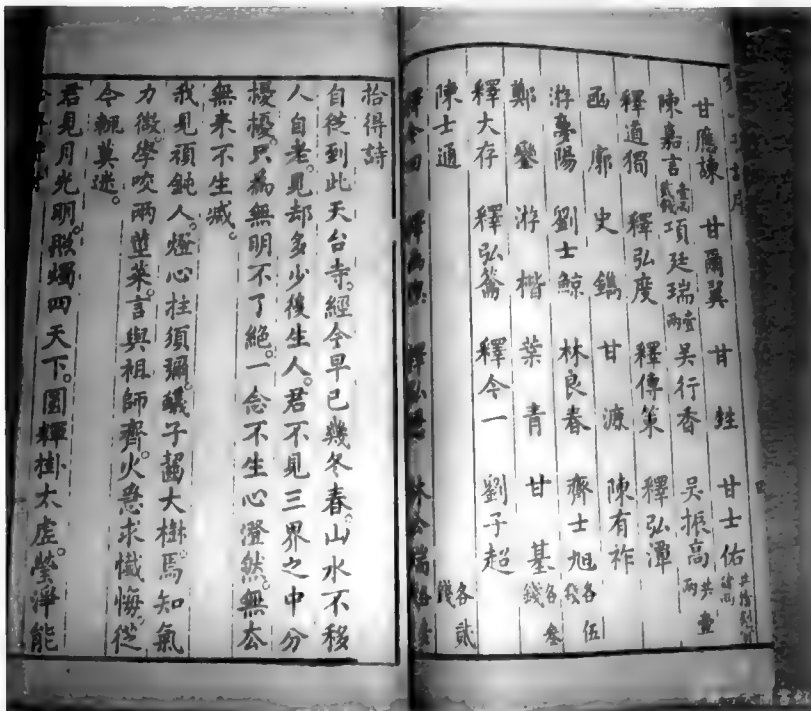 甘應諫 甘爾翼 甘甡 甘士佑
陳嘉言 項廷瑞 壹兩 吳行香 吳振高 共壹兩
釋道獨 釋弘度 釋傳策 釋弘潭
函廓 史鐫 甘源 陳有祚
游鑾陽 劉士鯨 林良春 齊士旭 各伍
鄭鑾 游楷 葉青 甘基 各叁錢
釋大存 釋弘 釋今一 劉子超
陳士通 各貳錢
拾得詩
自從到此天台寺。經今早已幾冬春。山水不移
人自老。見却多少後生人。君不見三界之中分
擾擾。只為無明不了絕。一念不生心澄然。無去
無来不生滅。
我見頑鈍人。燈心拄須彌。蟻子齧大樹。焉知氣
力微。學咬兩莖菜。言與祖師齊。火急求懺悔。從
今輙莫迷。
君見月光明。照燭四天下。圓輝掛太虛。瑩淨能